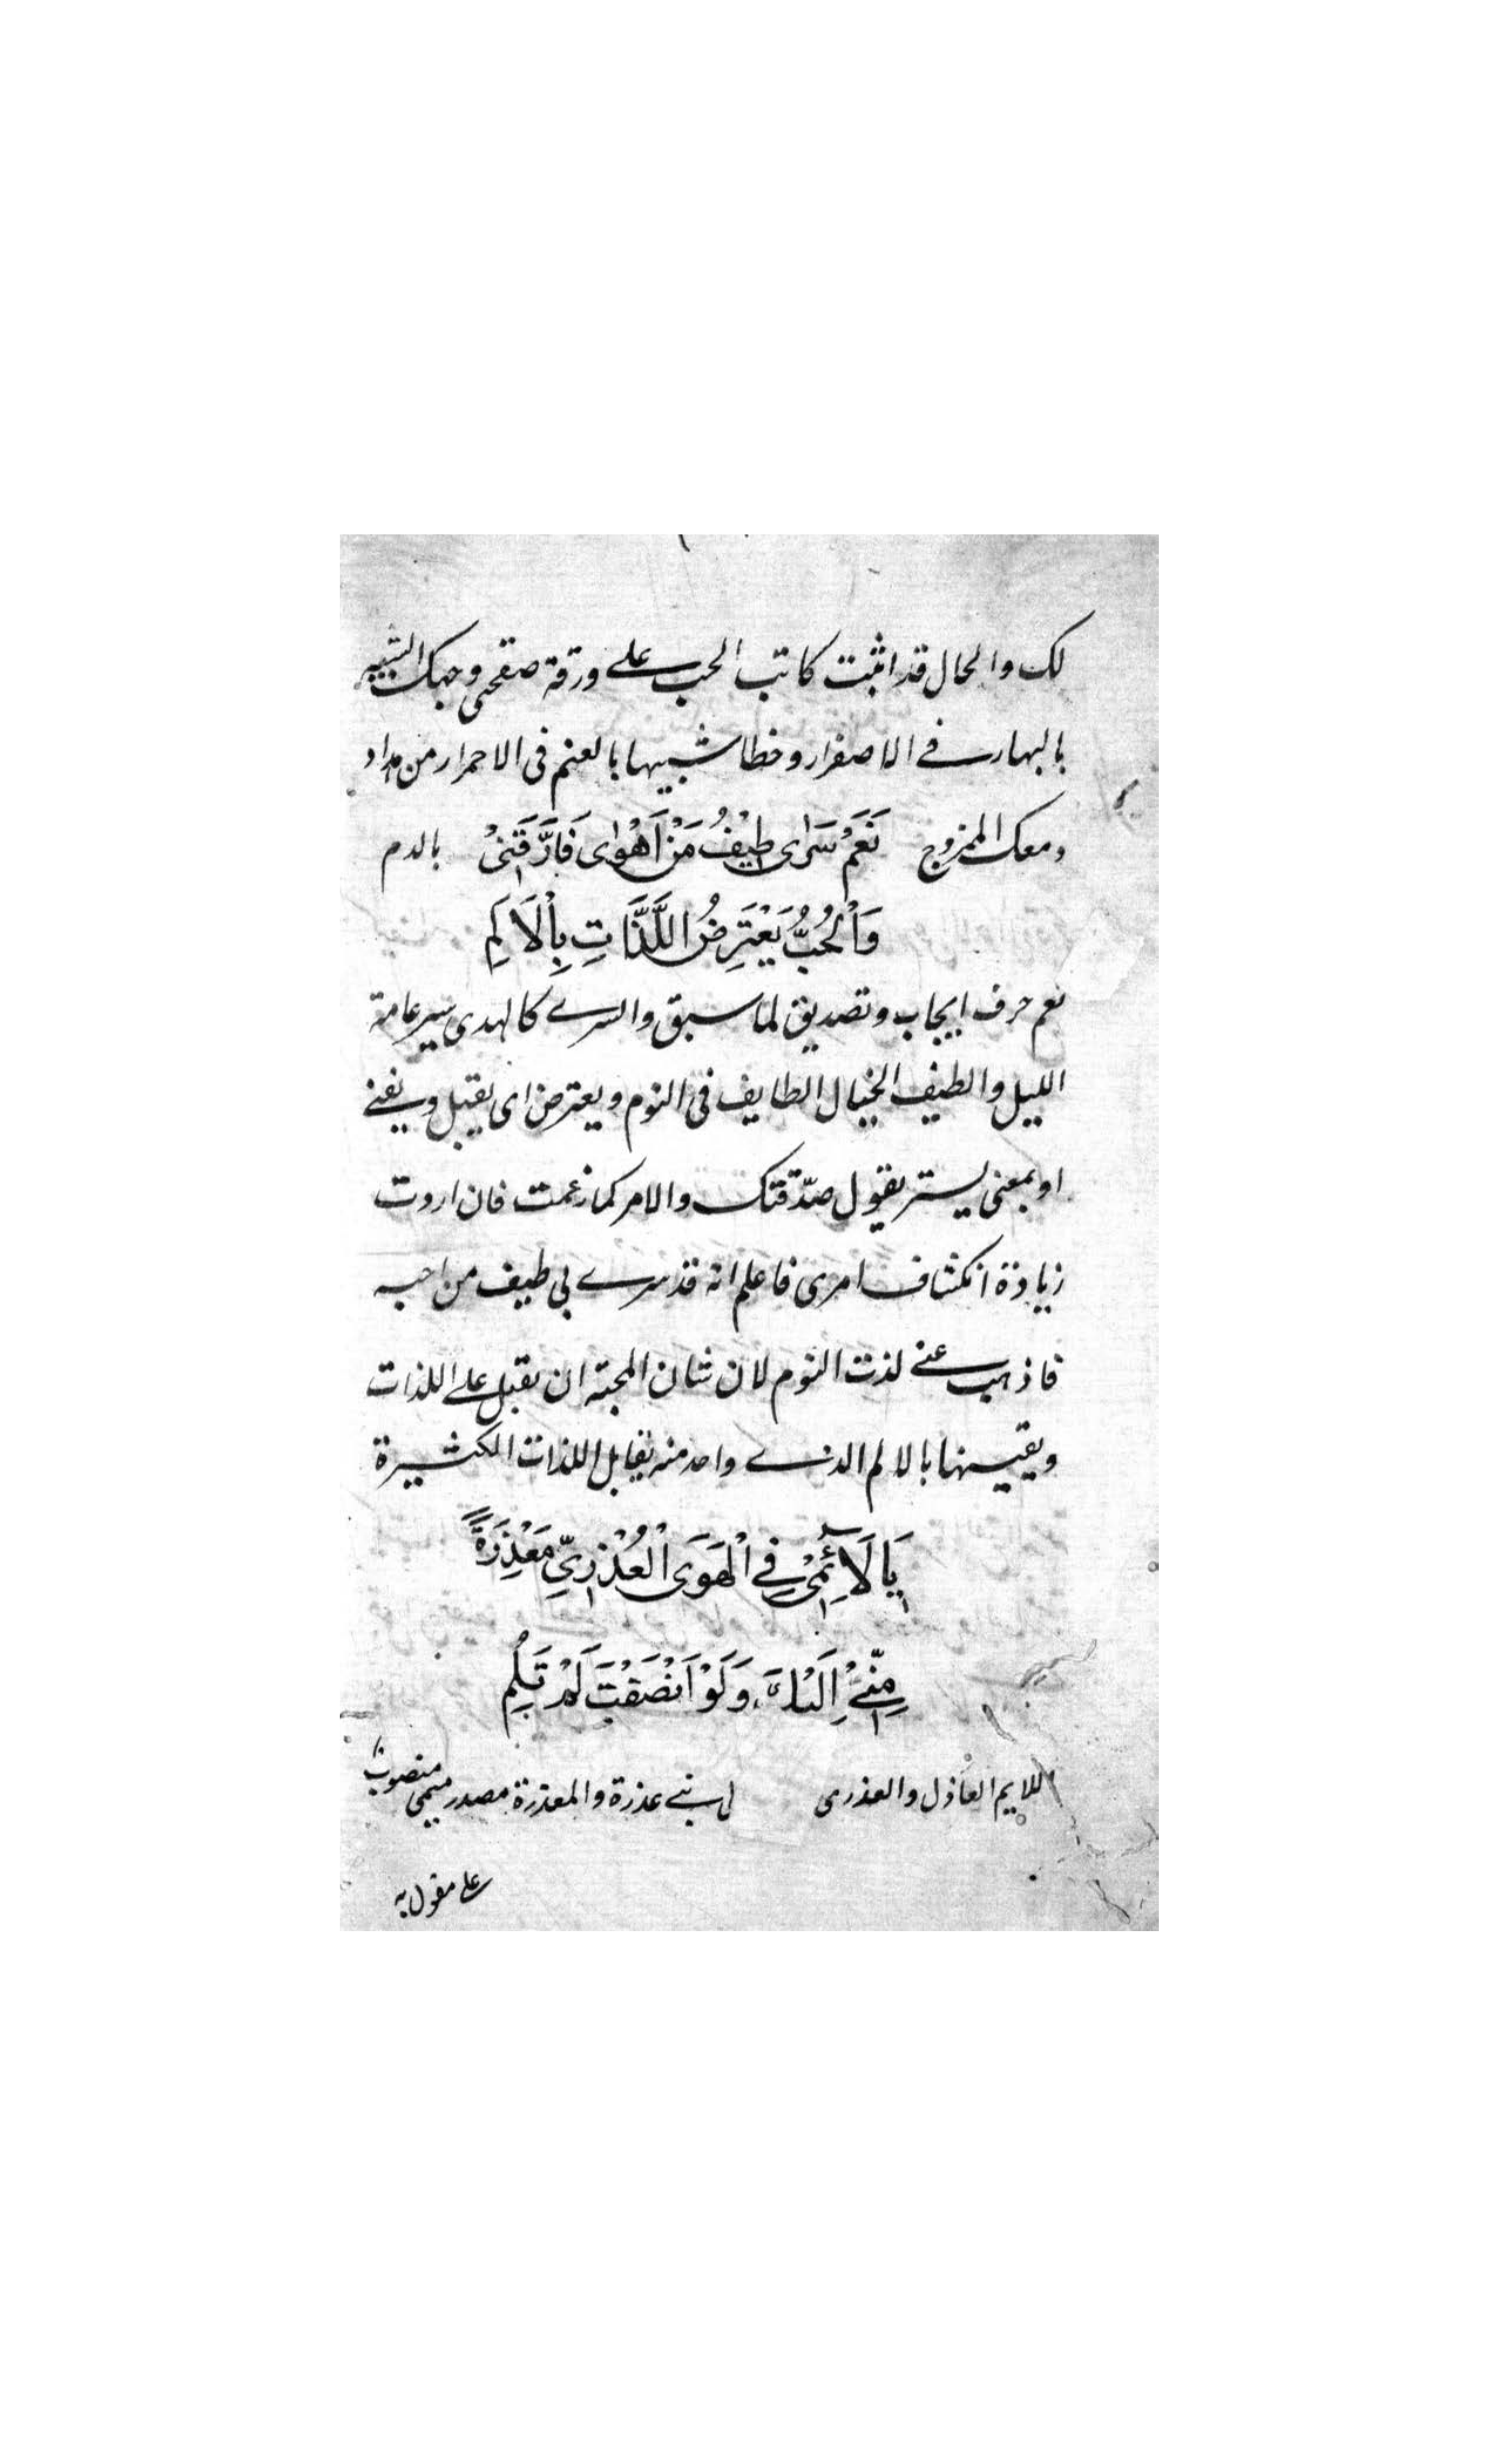 لك والحال قد اثبت كاتب الحب على ورقة صفحتى وجهك الشبيه
بالبهار فى الاصفرار وخطا شبيها بالعنم فى الاحمرار من مداد
دمعك الممزوج نَعَمْ سَرٰى طَيْفُ مَنْ اَهْوٰى فَاَرَّقَنِىْ بالدم
وَالْحُبُّ يَعْتَرِضُ اللَّذَّاتِ بِالْاَلَمِ
نعم حرف ايجاب وتصديق لما سبق والسرى كالهدى سير عامة
الليل والطيف الخيال الطايف فى النوم ويعترض اى يقبل ويفنى
او بمعنى يستر يقول صدّقتك والامر كما زعمت فان اردت
زيادة انكشاف امرى فاعلم انه قد سرى بى طيف من احبه
فاذهب عنى لذت النوم لان شان المحبة ان يقبل على اللذات
ويقيسها بالالم الذى واحد منه يقابل اللذات الكثيرة
يَا لَآئِمِىْ فِى الْهَوَى الْعُذْرِيِّ مَعْذِرَةً
مِنِّىْ اِلَيْكَ وَلَوْ اَنْصَفْتَ لَمْ تَلُمِ
اللايم العاذل والعذرى لى بنى عذرة والمعذرة مصدر ميمى منصوب
على مفعول به